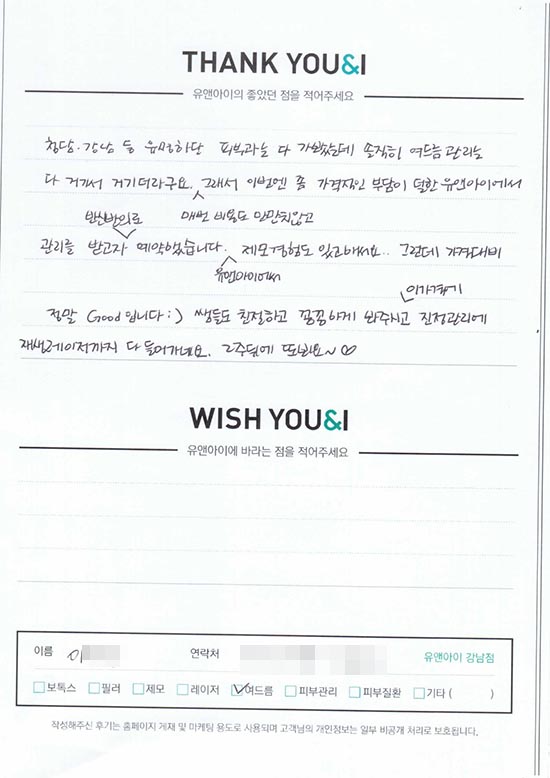 THANK YOU&I
유앤아이의 좋았던 점을 적어주세요
청담.강남 등 유명하단 피부과는 다 가봤는데 솔직히 여드름 관리는
다 거기서 거기더라구요. 그래서 이번엔 좀 가격적인 부담이 덜한 유앤아이에서
반신반의로 매번 비용도 만만치않고
관리를 받고자 예약했습니다. 제모경험도 있고해서요.. 그런데 가격대비
유앤아이에서 이가격에
정말 Good입니다 :) 쌤들도 친절하고 꼼꼼하게 봐주시고 진정관리에
재생레이저까지 다 들어가네요. 2주뒤에 또봐요~♡
WISH YOU&I
유앤아이에 바라는 점을 적어주세요
이름 이 연락처 유앤아이 강남점
보톡스 필러 제모 레이저 여드름 피부관리 피부질환 기타 ( )
작성해주신 후기는 홈페이지 게재 및 마케팅 용도로 사용되며 고객님의 개인정보는 일부 비공개 처리로 보호됩니다.